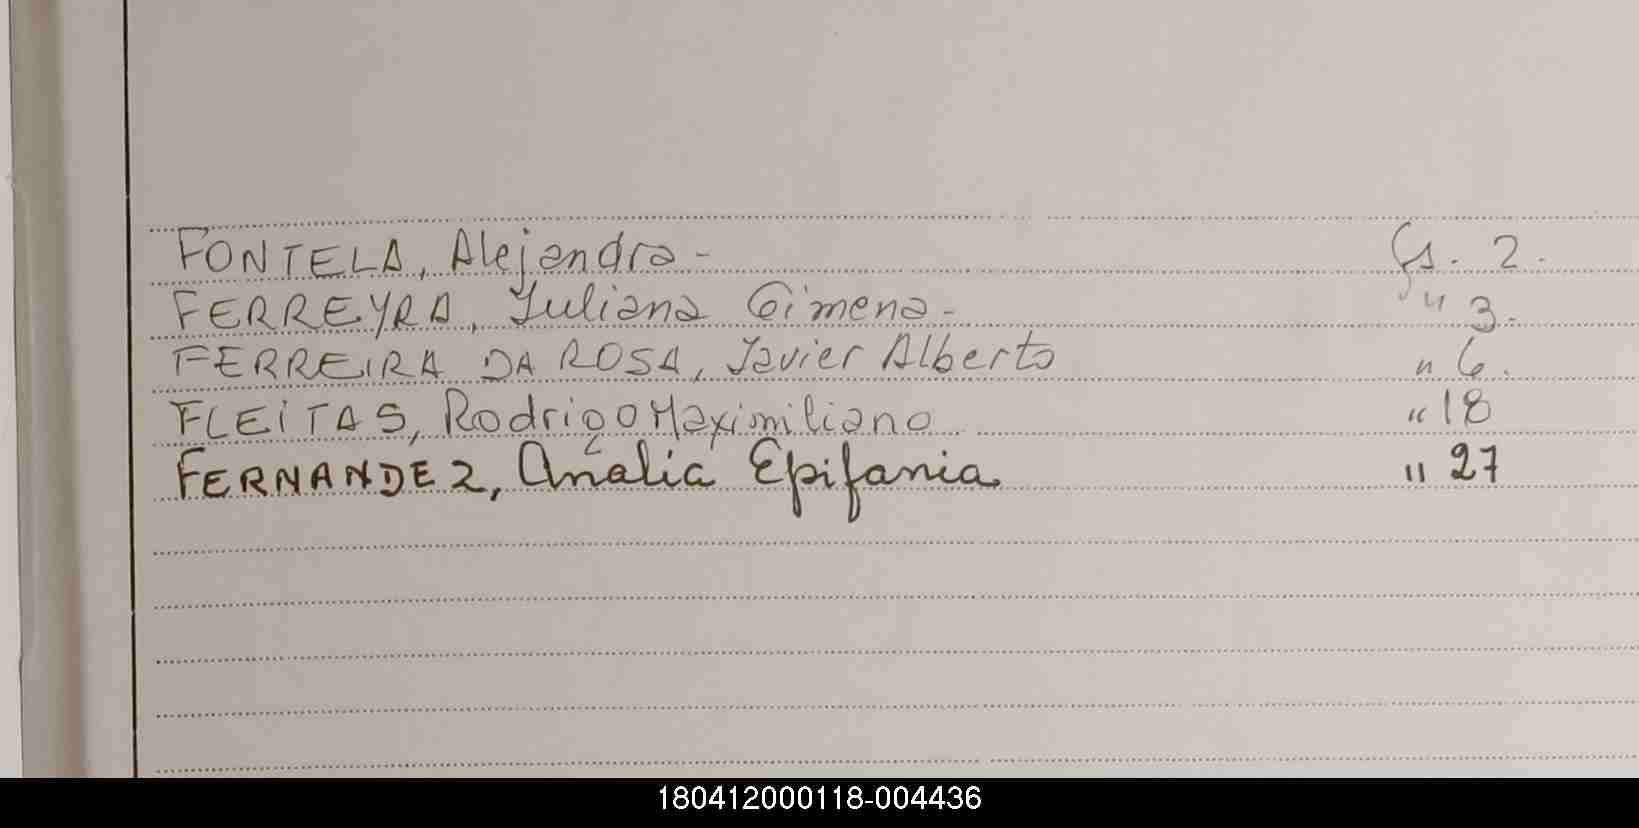 FONTELA, Alejandra - Fs. 2.
FERREYRA, Juliana Gimena - " 3.
FERREIRA DA ROSA, Javier Alberto " 6.
FLEITAS, Rodrigo Maximiliano " 18
FERNANDEZ, Analia Epifania " 27
180412000118-004436